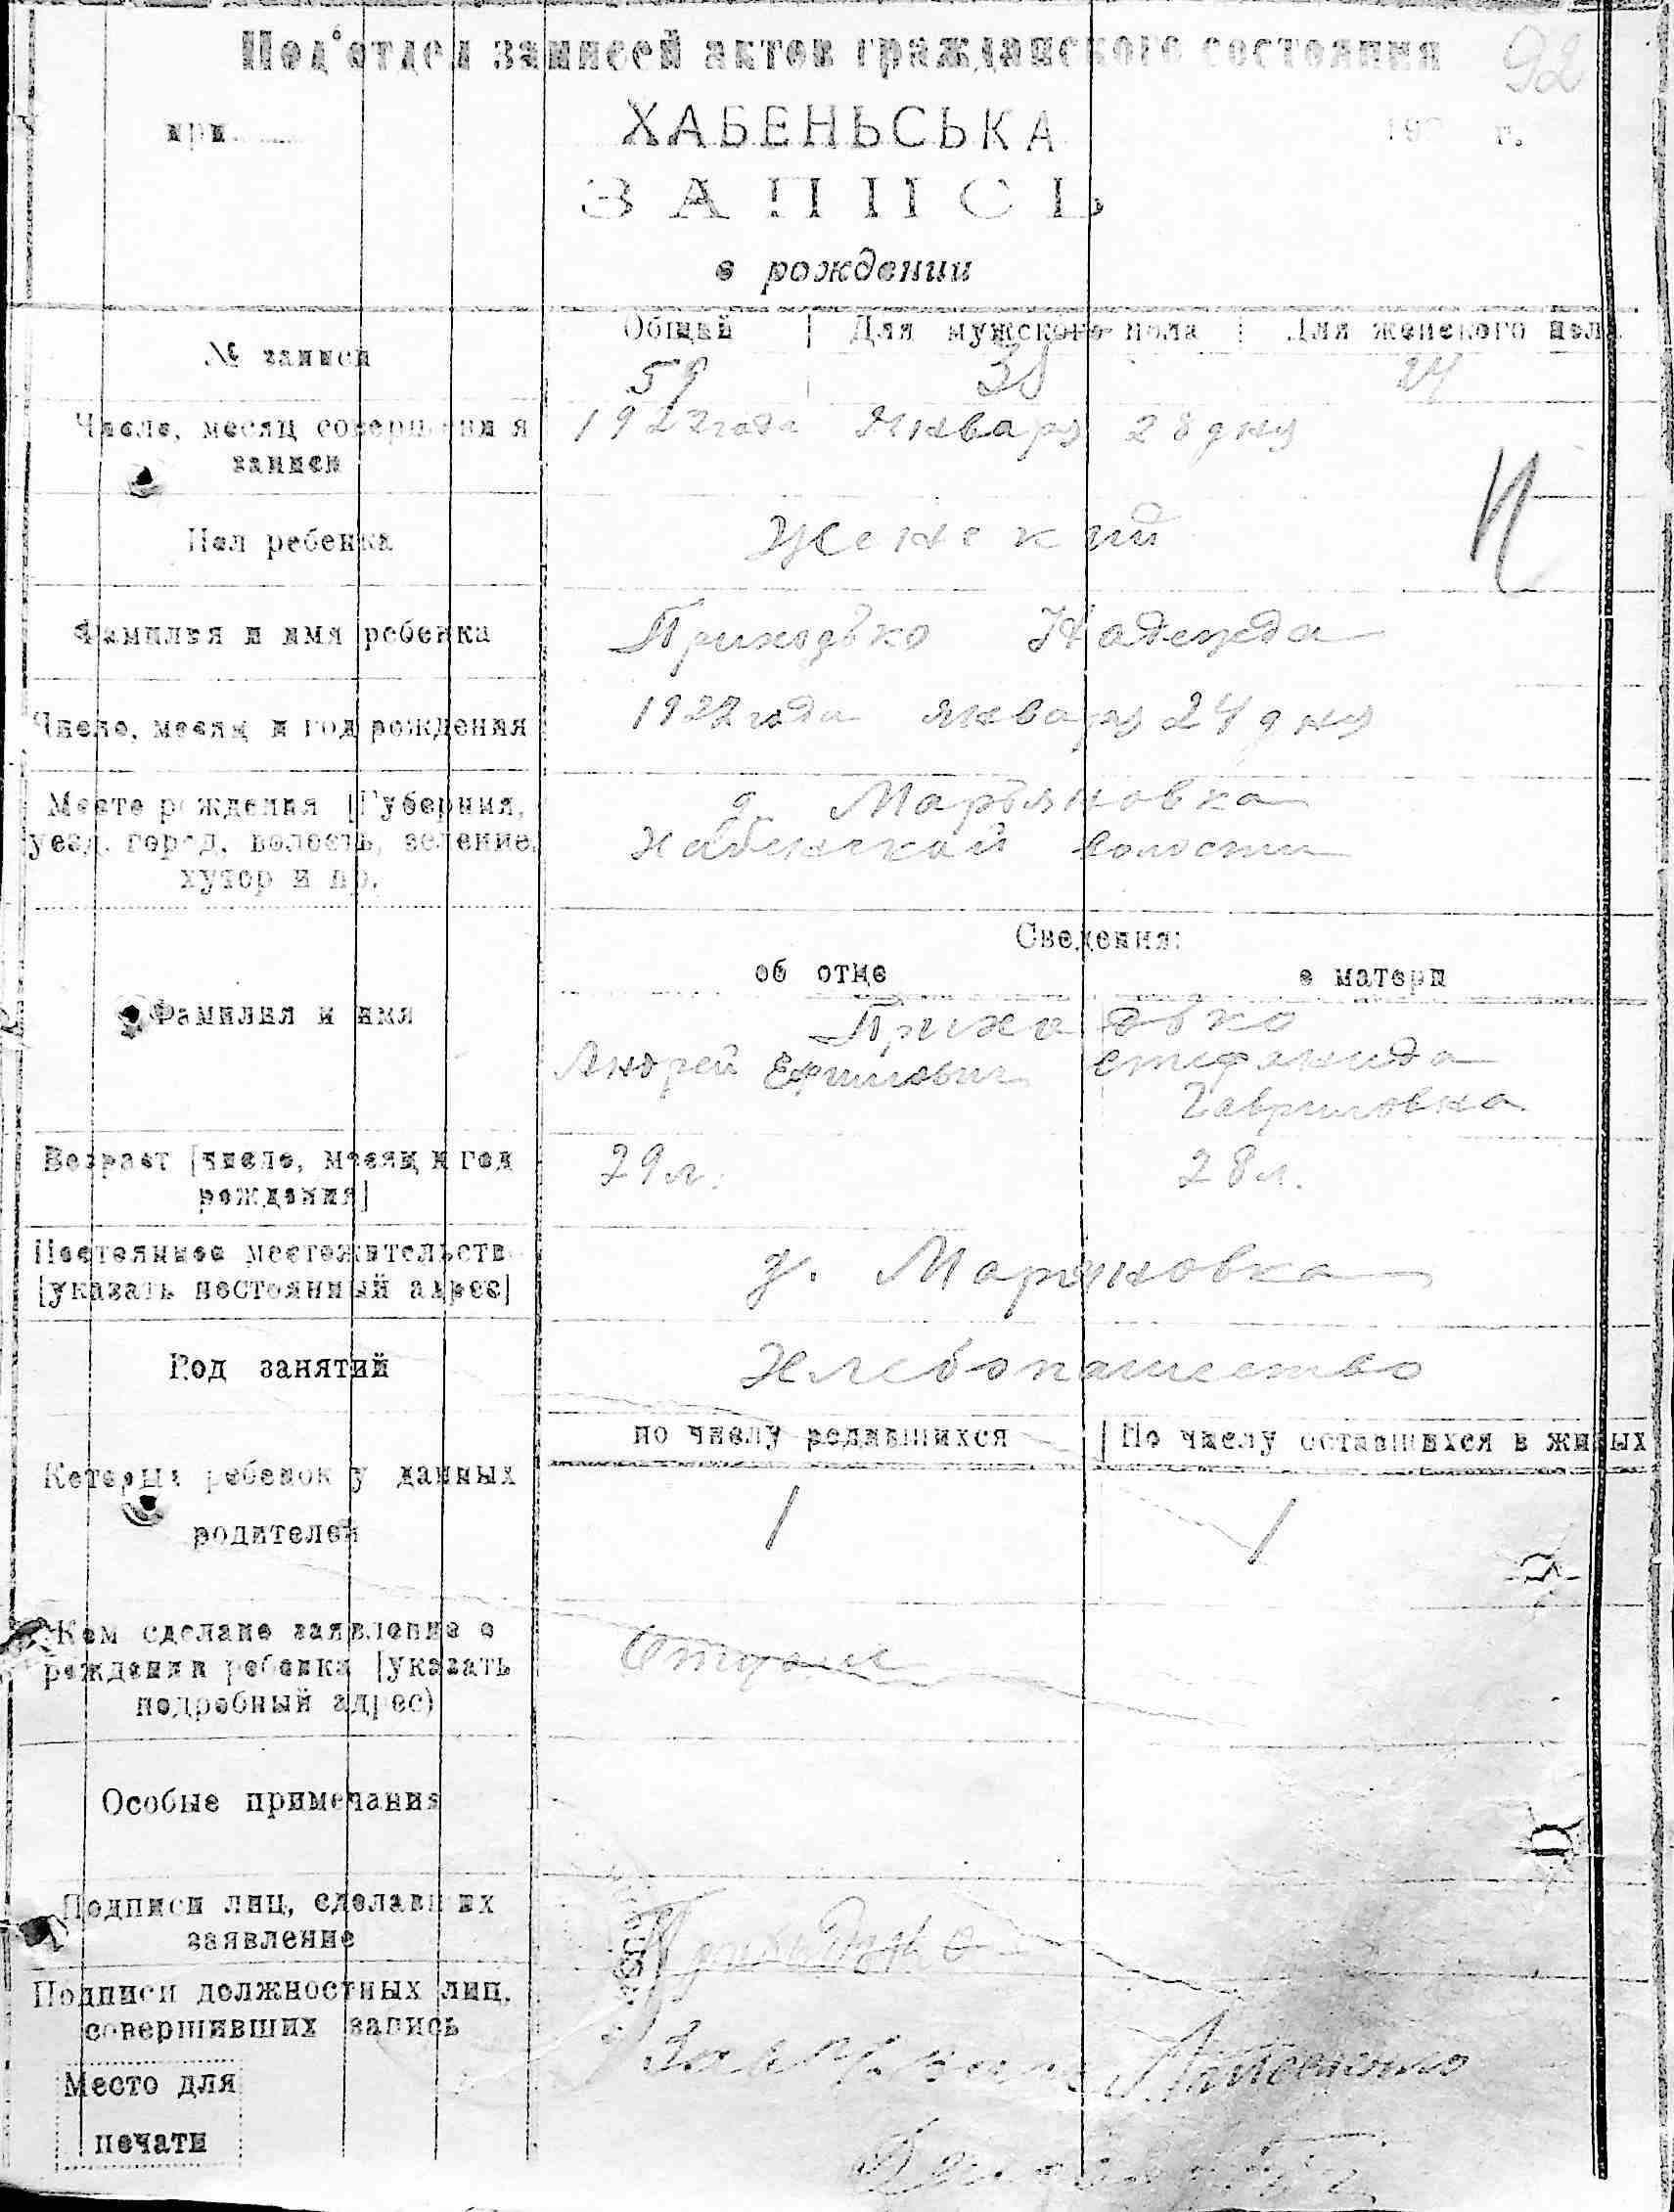 Под'отдел записей актов гражданского состояния 92
при ХАБЕНЬСЬКА 192 г.
ЗАПИСЬ
о рождении
Общий Для мужского пола Для женского пола
№ записи 59 35 24
Число, месяц совершения 1922 года Январу 28 дну
записи
Пол ребенка Женский
Фамилия и имя ребенка Приходько Надежда
Число, месяц и год рождения 1922 года январу 24 дну
Место рождения [Губерния, д Марьяновка
уезд, город, волость, селение, Хабенской волости
хутор и пр.
Сведения:
об отце о матери
Фамилия и имя Приходько
Андрей Ефимович Стефанида
Гавриловна
Возраст [число, месяц и год 29 л. 28 л.
рождения]
Постоянное местожительств
[указать постоянный адрес] д. Марьяновка
Род занятий Хлебопашество
по числу родившихся По числу оставшихся в живых
Который ребенок у данных 1 1
родителей
Кем сделано заявление о
рождении ребенка [указать Отцом
подробный адрес)
Особые примечания
Подписи лиц, сделавших
заявление Приходько
Подписи должностных лиц,
совершивших запись
Место для
печати